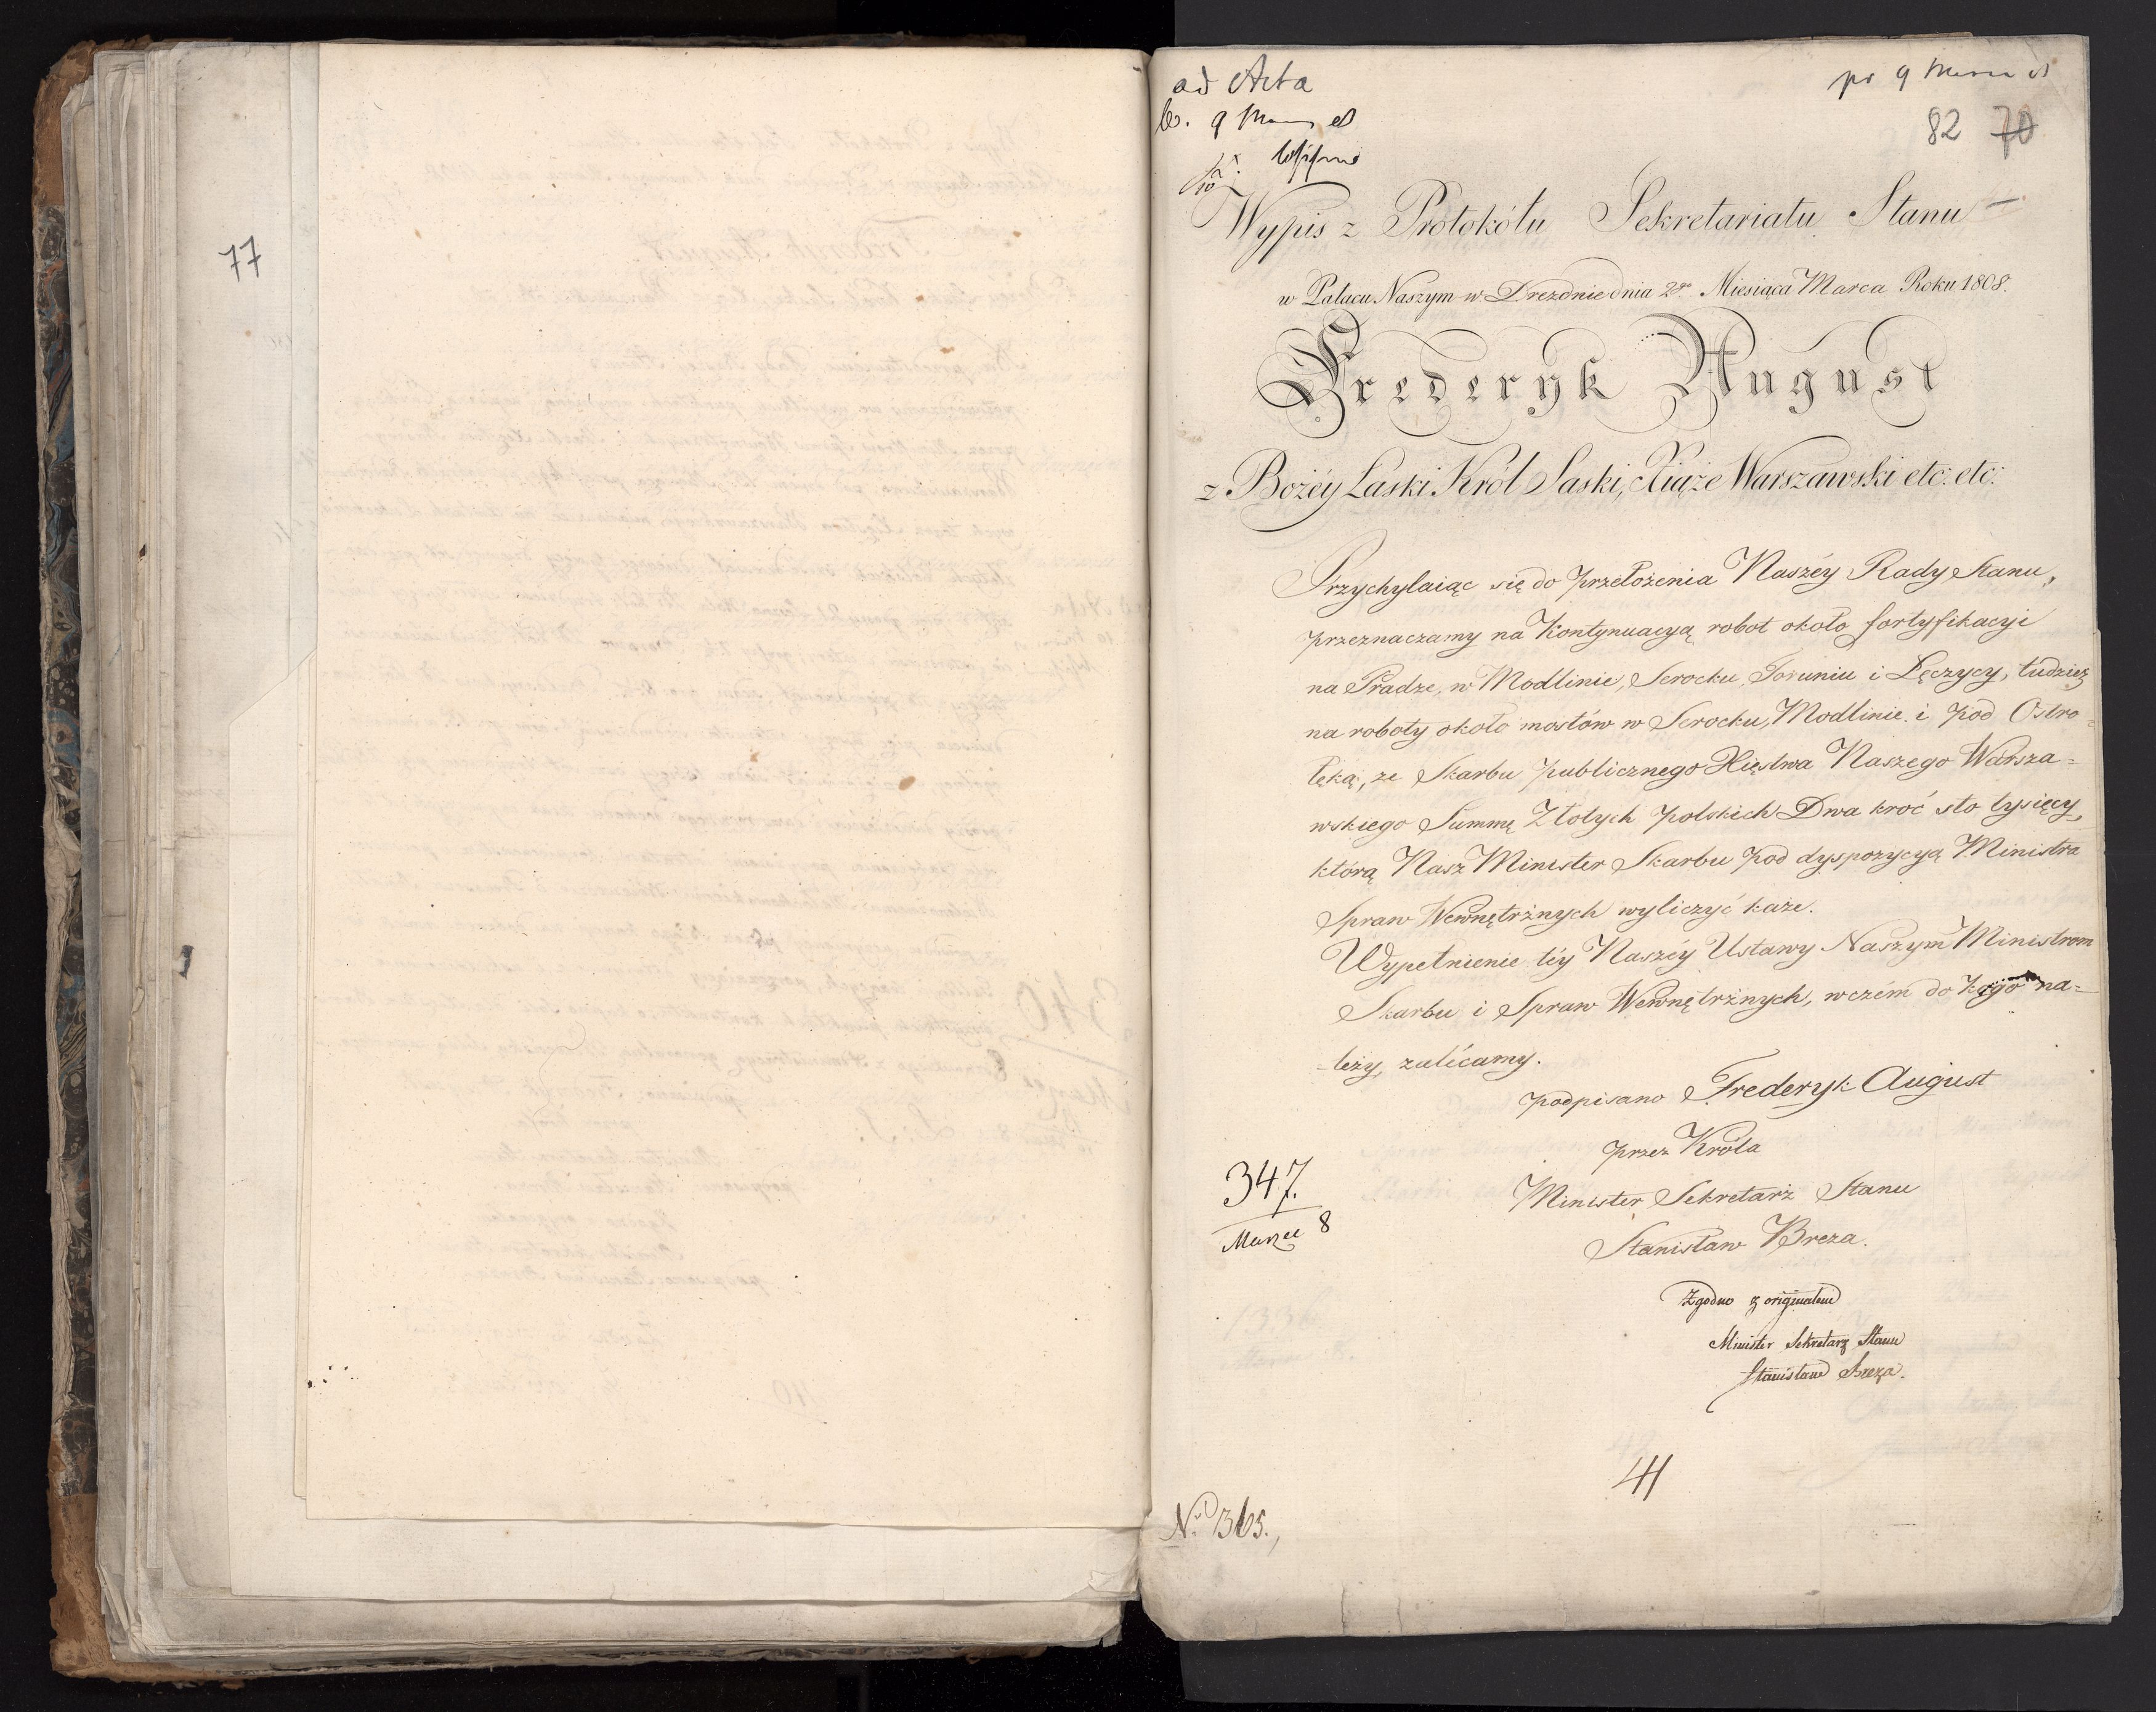 77
ad Acta
pr 9 Marca
9
82 70
Wypis z Protokółu Sekretariatu Stanu
w Pałacu Naszym w Dreznie dnia 2go Miesiąca Marca Roku 1808.
Frederyk August
z Bożéy Łaski Król Saski, Xiąże Warszawski etc: etc:
Przychylaiąc się do przełożenia Naszéy Rady Stanu,
przeznaczamy na Kontynuacyą robot około fortyfikacyi
na Pradze, w Modlinie, Serocku, Toruniu i Łęczycy, tudzież
na roboty około mostów w Serocku, Modlinie i pod Ostro=
łęką, ze Skarbu publicznego Xięstwa Naszego Warsza=
wskiego Summę Złotych polskich Dwa kroć sto tysięcy,
którą Nasz Minister Skarbu pod dyspozycyą Ministra
Spraw Wewnętrznych wyliczyć każe.
Wypełnienie téy Naszéy Ustawy Naszym Ministrom
Skarbu i Spraw Wewnętrznych, w czém do kogo na=
=leży, zalécamy.
podpisano Frederyk August
przez Króla
Minister Sekretarz Stanu
Stanisław Breza.
347.
Marzec 8
Zgodno z originałem
Minister Sekretarz Stanu
Stanisław Breza.
41
No 1365.